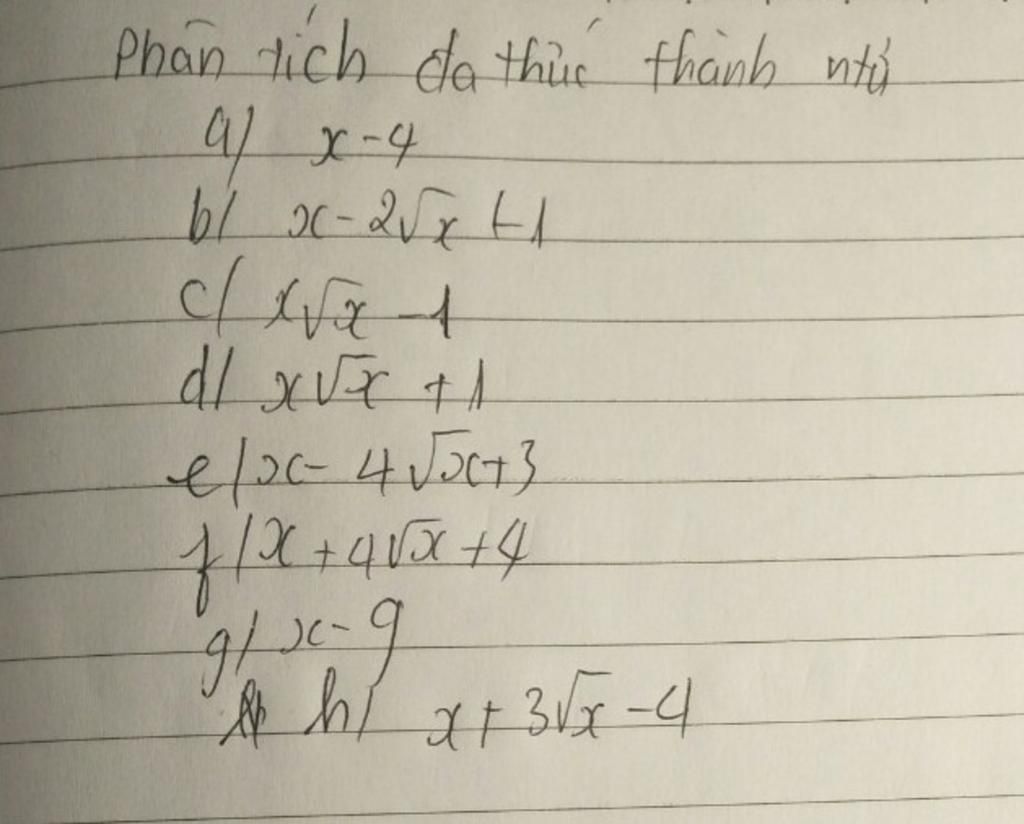 Phân tích đa thức thành ntử
a/ x-4
b/ x-2√x+1
c/ x√x-1
d/ x√x+1
e/ x-4√x+3
f/ x+4√x+4
g/ x-9
h/ x+3√x-4